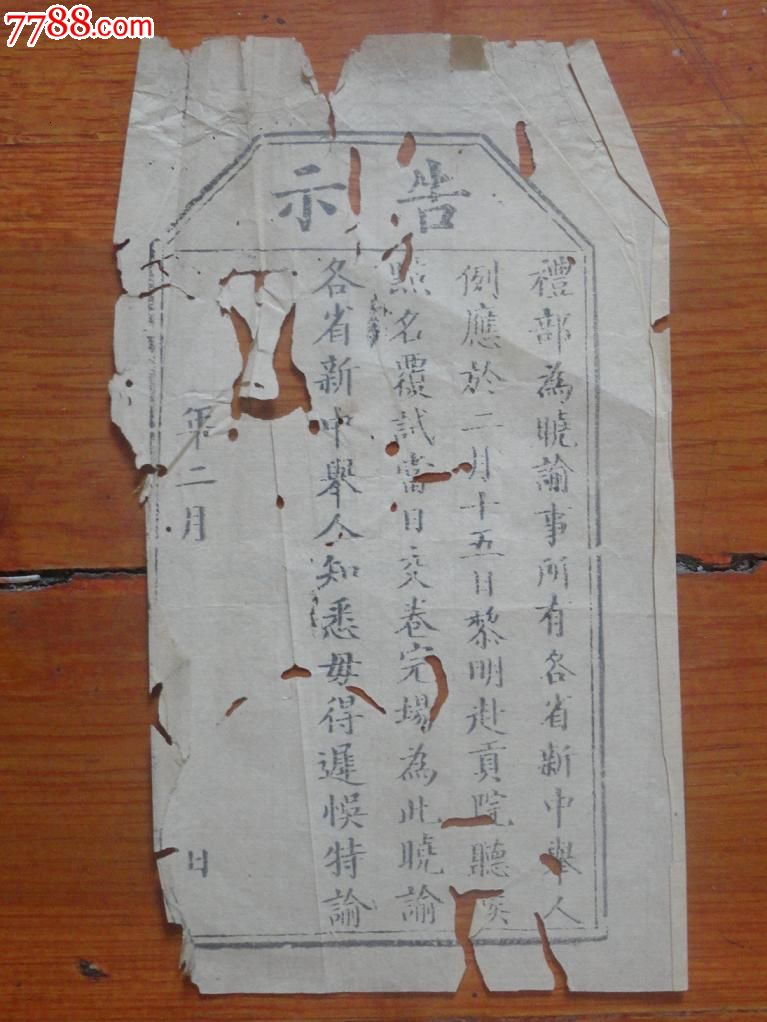 7788.com
告示
禮部為曉諭事所有各省新中舉人
例應於二月十五日黎明赴貢院聽候
點名覆試當日交卷完場為此曉諭
各省新中舉人知悉毋得遲悞特諭
年二月 日